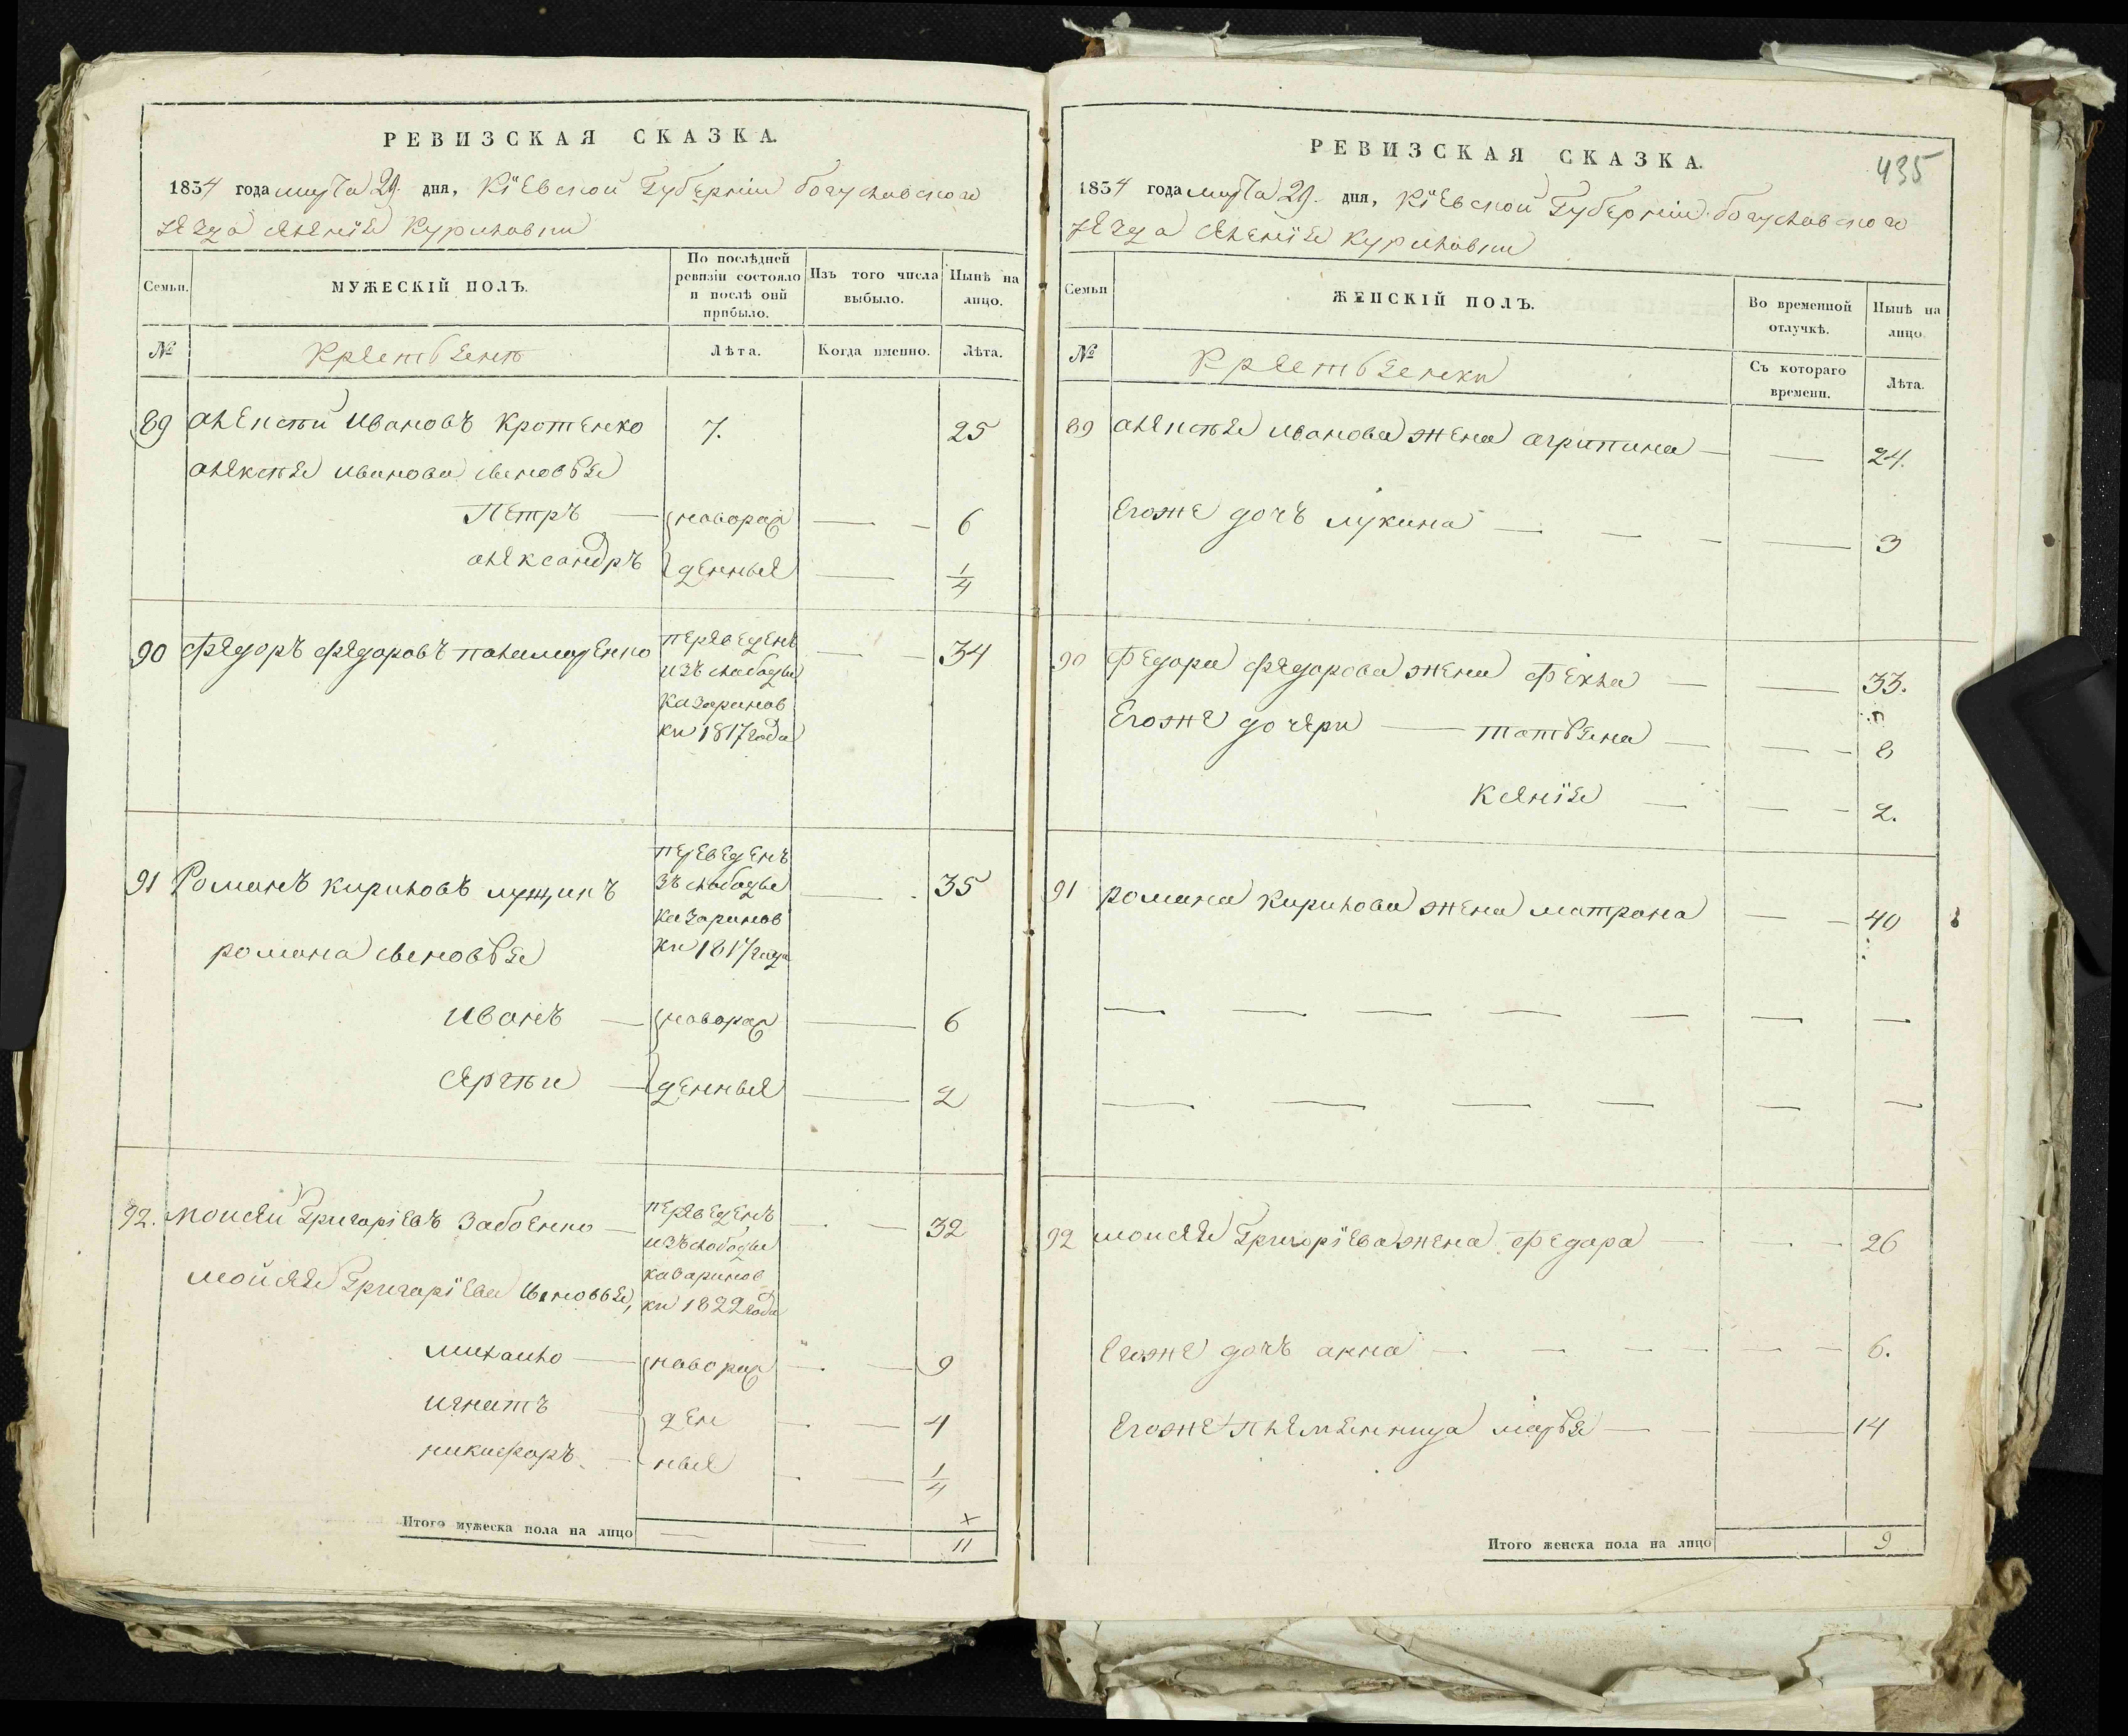 РЕВИЗСКАЯ СКАЗКА.
1834 года марта 29. дня, Кіевской Губерніи богуславского
уезда селенія Куриловки
Семьи.
МУЖЕСКІЙ ПОЛЪ.
По послѣдней ревизіи состояло и послѣ оной прибыло.
Изъ того числа выбыло.
Нынѣ на лицо.
№
Крестьянѣ
Лѣта.
Когда именно.
Лѣта.
89 алексѣй Ивановъ Кротенко 7. 25
алексѣя иванова сыновья
Петръ — новорож — — 6
александръ денные — 1/4
90 Федоръ федоровъ паламаренко переведенъ — — 34
изъ слободы
казаринов
ки 1817 года
91 Романъ кириловъ лущикъ переведенъ — 35
зъ слободы
казаринов
романа сыновья ки 1817 года
иванъ — новорож — 6
сергѣи — денные — 2
92. моисей Григоріевъ Забоенко — переведенъ — — 32
изъ слободы
казаринов
мойсея Григоріева сыновья, ки 1822 года
михаило — новорож — — 9
игнатъ — ден — — 4
никифоръ — ные — — 1/4
Итого мужеска пола на лицо — — 11
435
РЕВИЗСКАЯ СКАЗКА.
1834 года марта 29. дня, Кіевской Губерніи богуславского
уезда селенія Куриловки
Семьи
ЖЕНСКІЙ ПОЛЪ.
Во временной отлучкѣ.
Нынѣ на лицо.
№
Крестьянки
Съ котораго времени.
Лѣта.
89 алексѣя иванова жена агрипина — — 24.
Егоже дочъ лукина — — — — 3
90 Федора федорова жена Фекла — — 33.
Егоже дочери — татьяна — — — 8
Ксенія — — — 2.
91 романа Кирилова жена матрона — — 40
— — — — — — —
— — — — — —
92 моисея Григоріева жена Федора — — — 26
Егоже дочъ анна — — — — — — 6.
Егоже племянница марья — — — 14
Итого женска пола на лицо 9